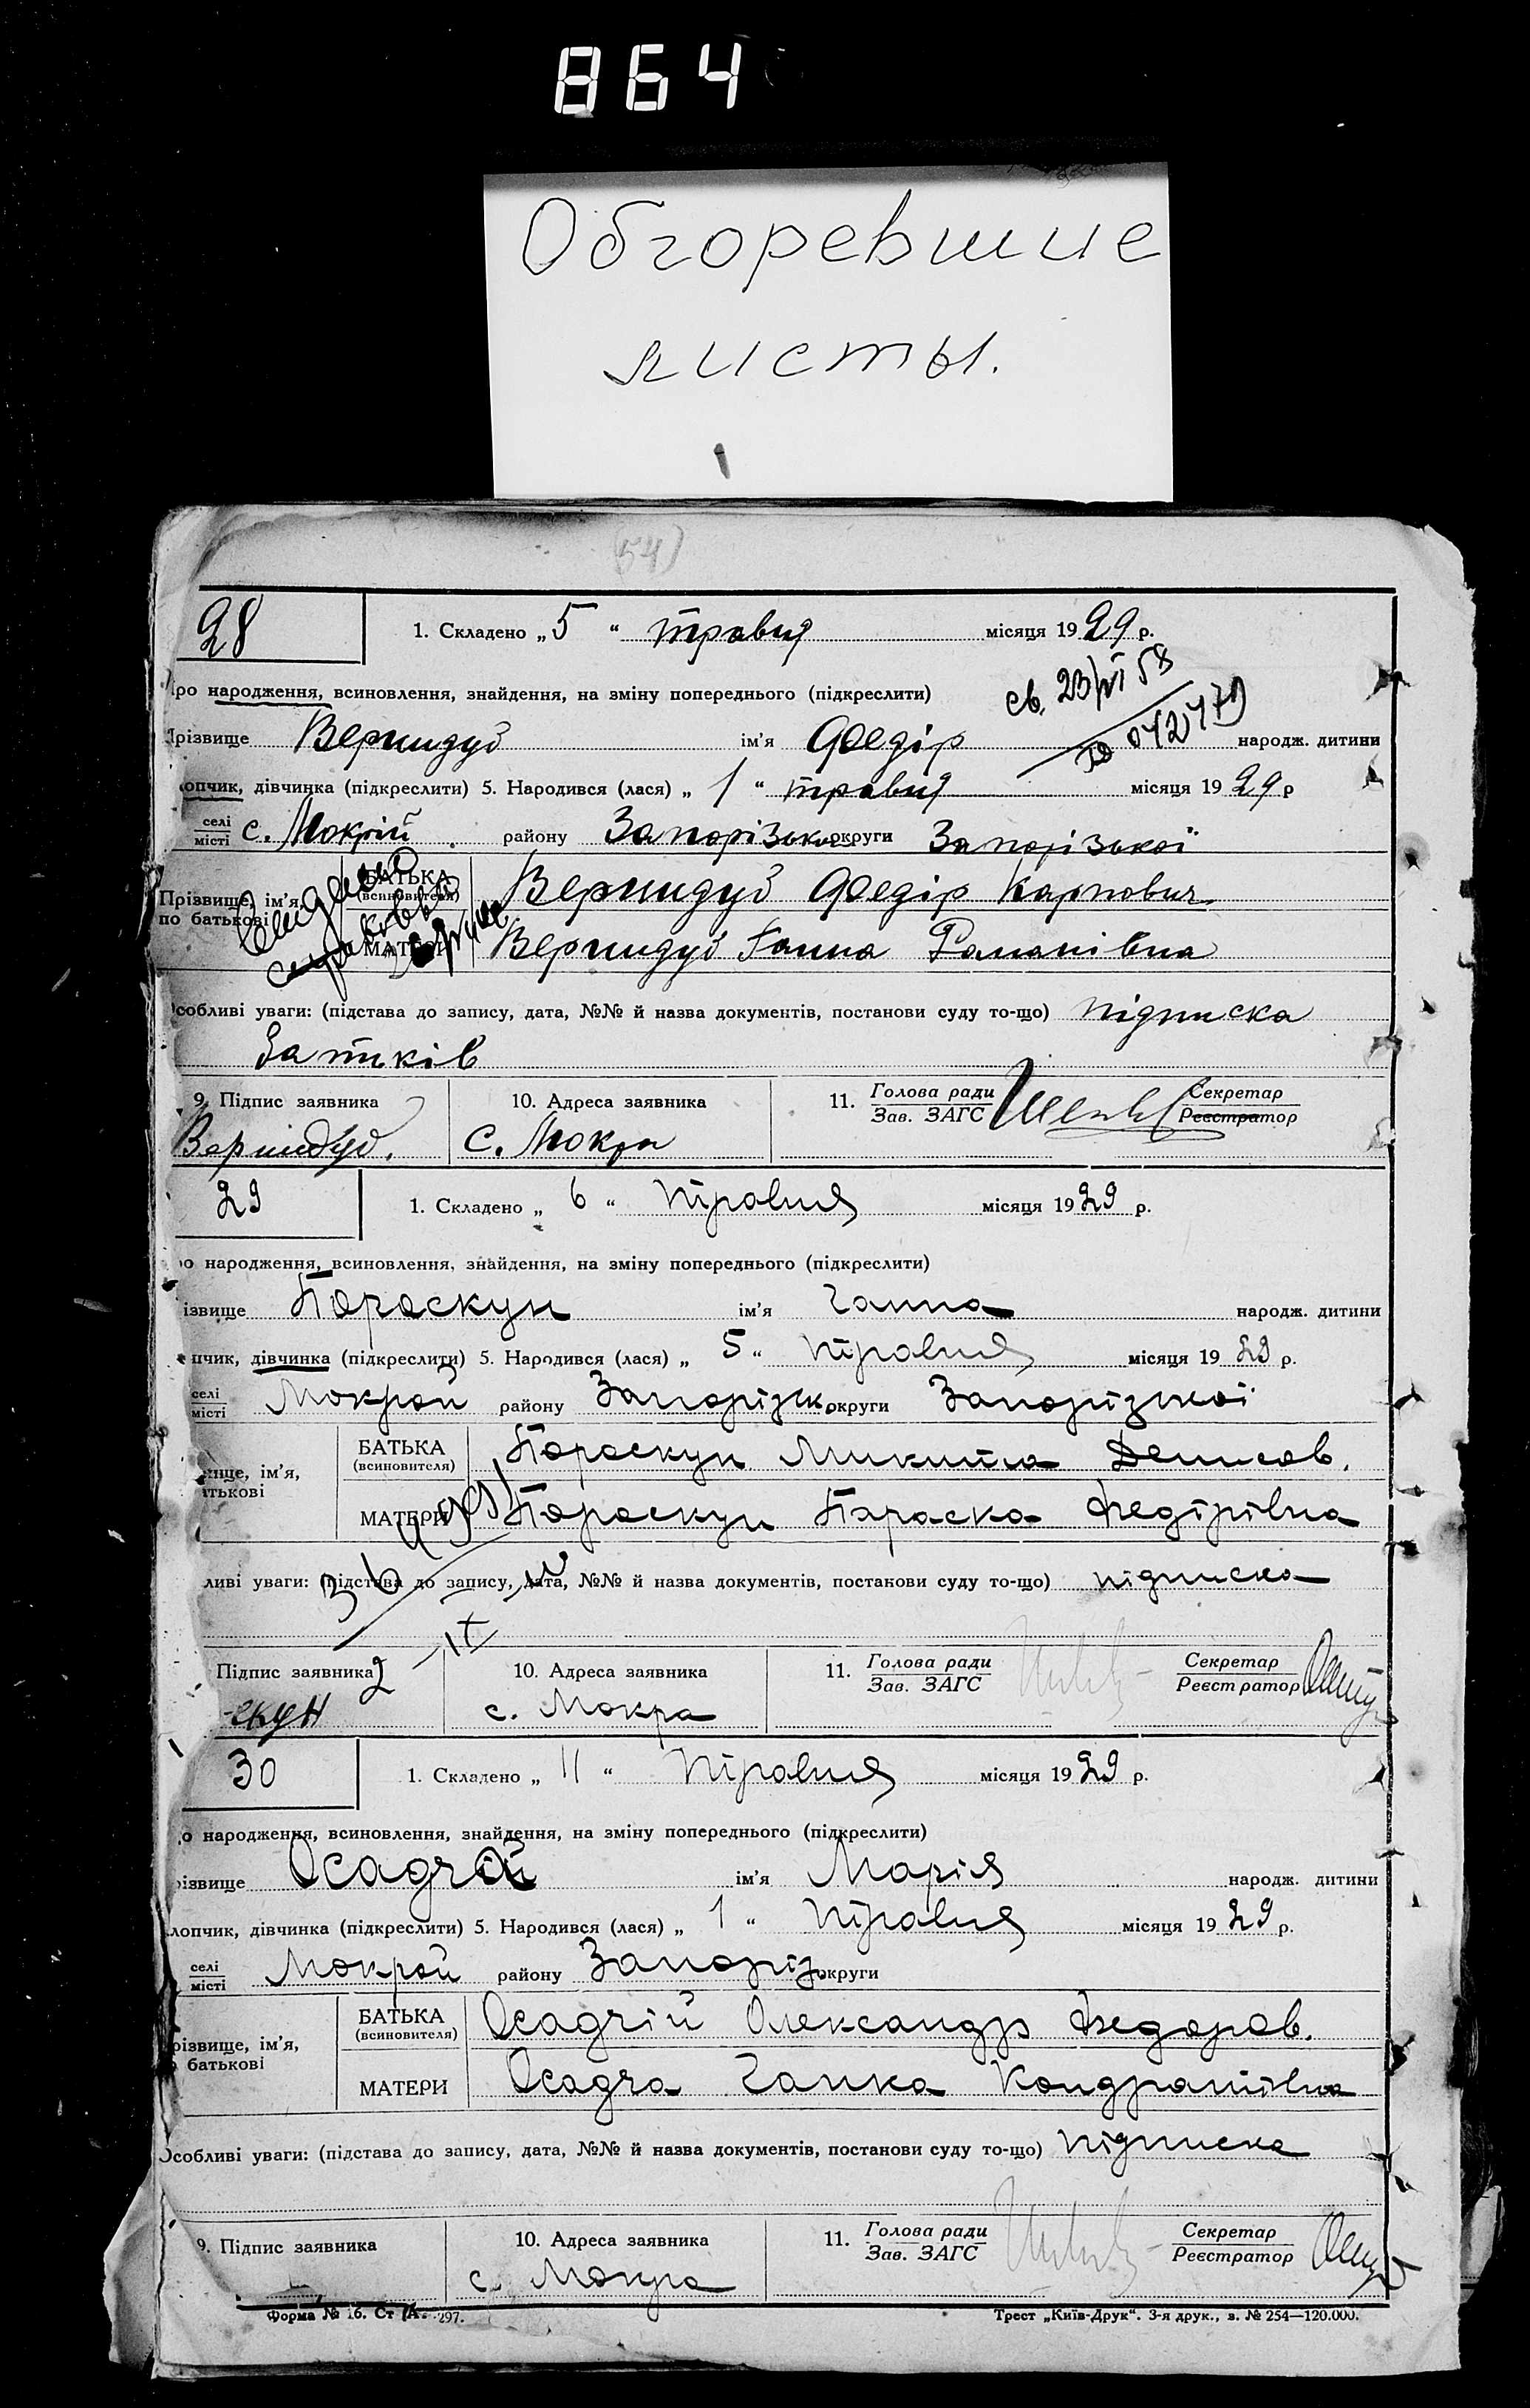 864
Обгоревшие
листы.
(54)
28
1. Складено „5“ травня місяця 1929 р.
ро народження, всиновлення, знайдення, на зміну попереднього (підкреслити)
св. 23/VI 58
різвище Вернидуб ім'я Федір народж. дитини
опчик, дівчинка (підкреслити) 5. Народився (лася) „1“ травня місяця 1929 р
селі
місті с. Мокрій району Запорізького округи Запорізької
Прізвище, ім'я,
по батькові
БАТЬКА
(всиновителя) Вернидуб Федір Карпович
МАТЕРИ Вернидуб Ганна Романівна
собливі уваги: (підстава до запису, дата, №№ й назва документів, постанови суду то-що) підписка
Батьків
9. Підпис заявника
Вернидуб.
10. Адреса заявника
с. Мокра
11. Голова ради
Зав. ЗАГС
Секретар
Реєстратор
29
1. Складено „6“ травня місяця 1929 р.
о народження, всиновлення, знайдення, на зміну попереднього (підкреслити)
ізвище Параскун ім'я Ганна народж. дитини
пчик, дівчинка (підкреслити) 5. Народився (лася) „5“ травня місяця 1929 р.
селі
місті Мокрой району Запорізьк. округи Запорізької
ище, ім'я,
атькові
БАТЬКА
(всиновителя) Параскун Микита Денисов.
МАТЕРИ Параскун Параска Федірівна
ливі уваги: (підстава до запису, дата, №№ й назва документів, постанови суду то-що) підписка
Підпис заявника
-скун
10. Адреса заявника
с. Мокра
11. Голова ради
Зав. ЗАГС
Секретар
Реєстратор
30
1. Складено „11“ травня місяця 1929 р.
о народження, всиновлення, знайдення, на зміну попереднього (підкреслити)
різвище Осадчій ім'я Марія народж. дитини
лопчик, дівчинка (підкреслити) 5. Народився (лася) „1“ травня місяця 1929 р.
селі
місті Мокрой району Запоріз. округи
різвище, ім'я,
о батькові
БАТЬКА
(всиновителя) Осадчій Олександр Федоров.
МАТЕРИ Осадча Ганка Кондратівна
Особливі уваги: (підстава до запису, дата, №№ й назва документів, постанови суду то-що) підписка
9. Підпис заявника
10. Адреса заявника
с. Мокра
11. Голова ради
Зав. ЗАГС
Секретар
Реєстратор
Форма № 16. Ст. А. 297.
Трест „Київ-Друк“. 3-я друк., з. № 254—120.000.